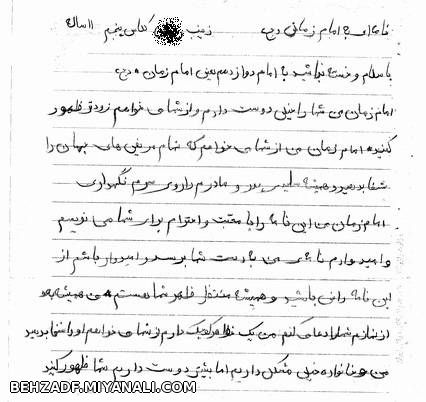 نامه ای به امام زمان (عج) زینب کلاس پنجم ۱۱ ساله
با سلام و خسته نباشید به امام دوازدهم یعنی امام زمان (عج)
امام زمان من شما را خیلی دوست دارم و از شما می خواهم زودتر ظهور
کنید امام زمان من از شما می خواهم که تمام مریض های جهان را
شفا بدهید و همیشه پدر و مادرم را روی سرم نگهداری
امام زمان من این نامه را با محبت و احترام برای شما می نویسم
و امیدوارم نامه ی من به دست شما برسد و امیدوار باشم از
این نامه راضی باشید و همیشه منتظر ظهور شما هستم من همیشه بعد
از نمازم شما را دعا می کنم من یک دارم از شما می خواهم او را شفا بدهید
من و خانواده خیلی مشکل داریم اما بیشتر دوست داریم شما ظهور کنید
BEHZADF.MIYANALI.COM